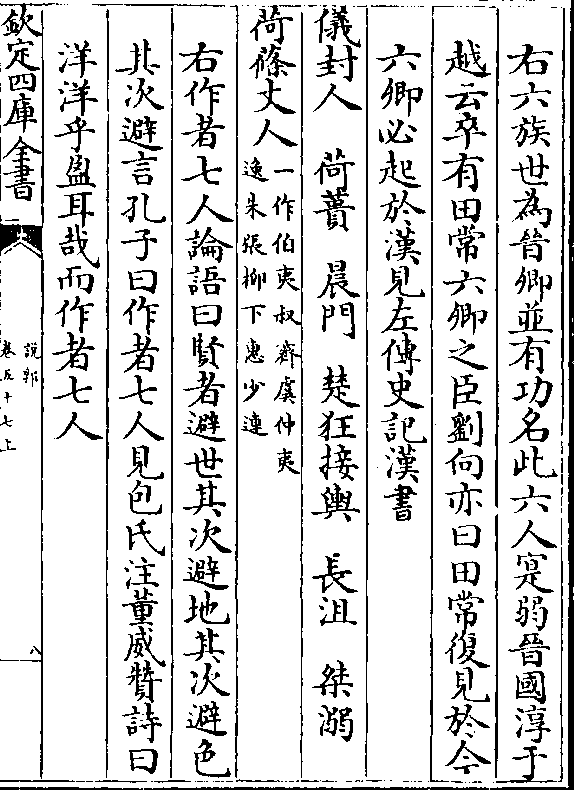 右六族世為晉卿並有功名此六人寔弱晉國淳于
越云卒有田常六卿之臣劉向亦曰田常復見於今
六卿必起於漢見左傳史記漢書
儀封人 荷蕢 晨門 楚狂接輿 長沮 桀溺
荷篠丈人一作伯夷叔齊虞仲夷
逸朱張柳下惠少連
右作者七人論語曰賢者避世其次避地其次避色
其次避言孔子曰作者七人見包氏注董威贊詩曰
洋洋乎盈耳哉而作者七人
欽定四庫全書
說郛
卷五十七上
八